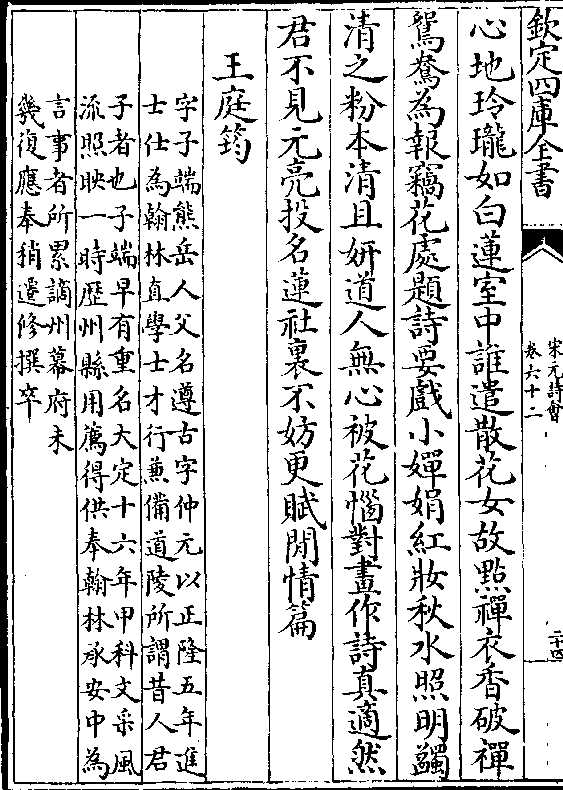 欽定四庫全書
宋元詩會
卷六十二
二十四
心地玲瓏如白蓮室中誰遣散花女故點禪衣香破禪
鴛鴦為報竊花處題詩要戲小嬋娟紅妝秋水照明蠲
清之粉本清且妍道人無心被花惱對畫作詩真適然
君不見元亮投名蓮社裏不妨更賦閒情篇
王庭筠
字子端熊岳人父名遵古字仲元以正隆五年進
士仕為翰林直學士才行兼備道陵所謂昔人君
子者也子端早有重名大定十六年甲科文采風
流照映一時歷州縣用薦得供奉翰林承安中為
言事者所累謫州幕府未
幾復應奉稍遷修撰卒